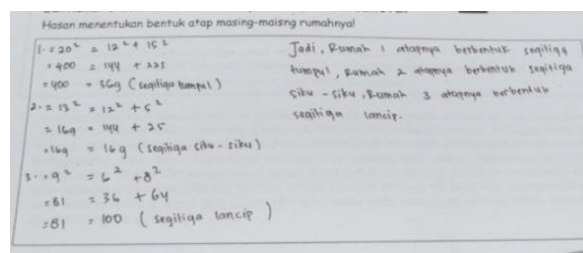 Hasan menentukan bentuk atap masing-maisng rumahnya!
1. = 20² = 12² + 15²
= 400 = 144 + 225
= 400 = 369 (segitiga tumpul)
2. = 13² = 12² + 5²
= 169 = 144 + 25
= 169 = 169 (segitiga siku-siku)
3. = 9² = 6² + 8²
= 81 = 36 + 64
= 81 = 100 (segitiga lancip)
Jadi, Rumah 1 atapnya berbentuk segitiga
tumpul, Rumah 2 atapnya berbentuk segitiga
siku-siku, Rumah 3 atapnya berbentuk
segitiga lancip.